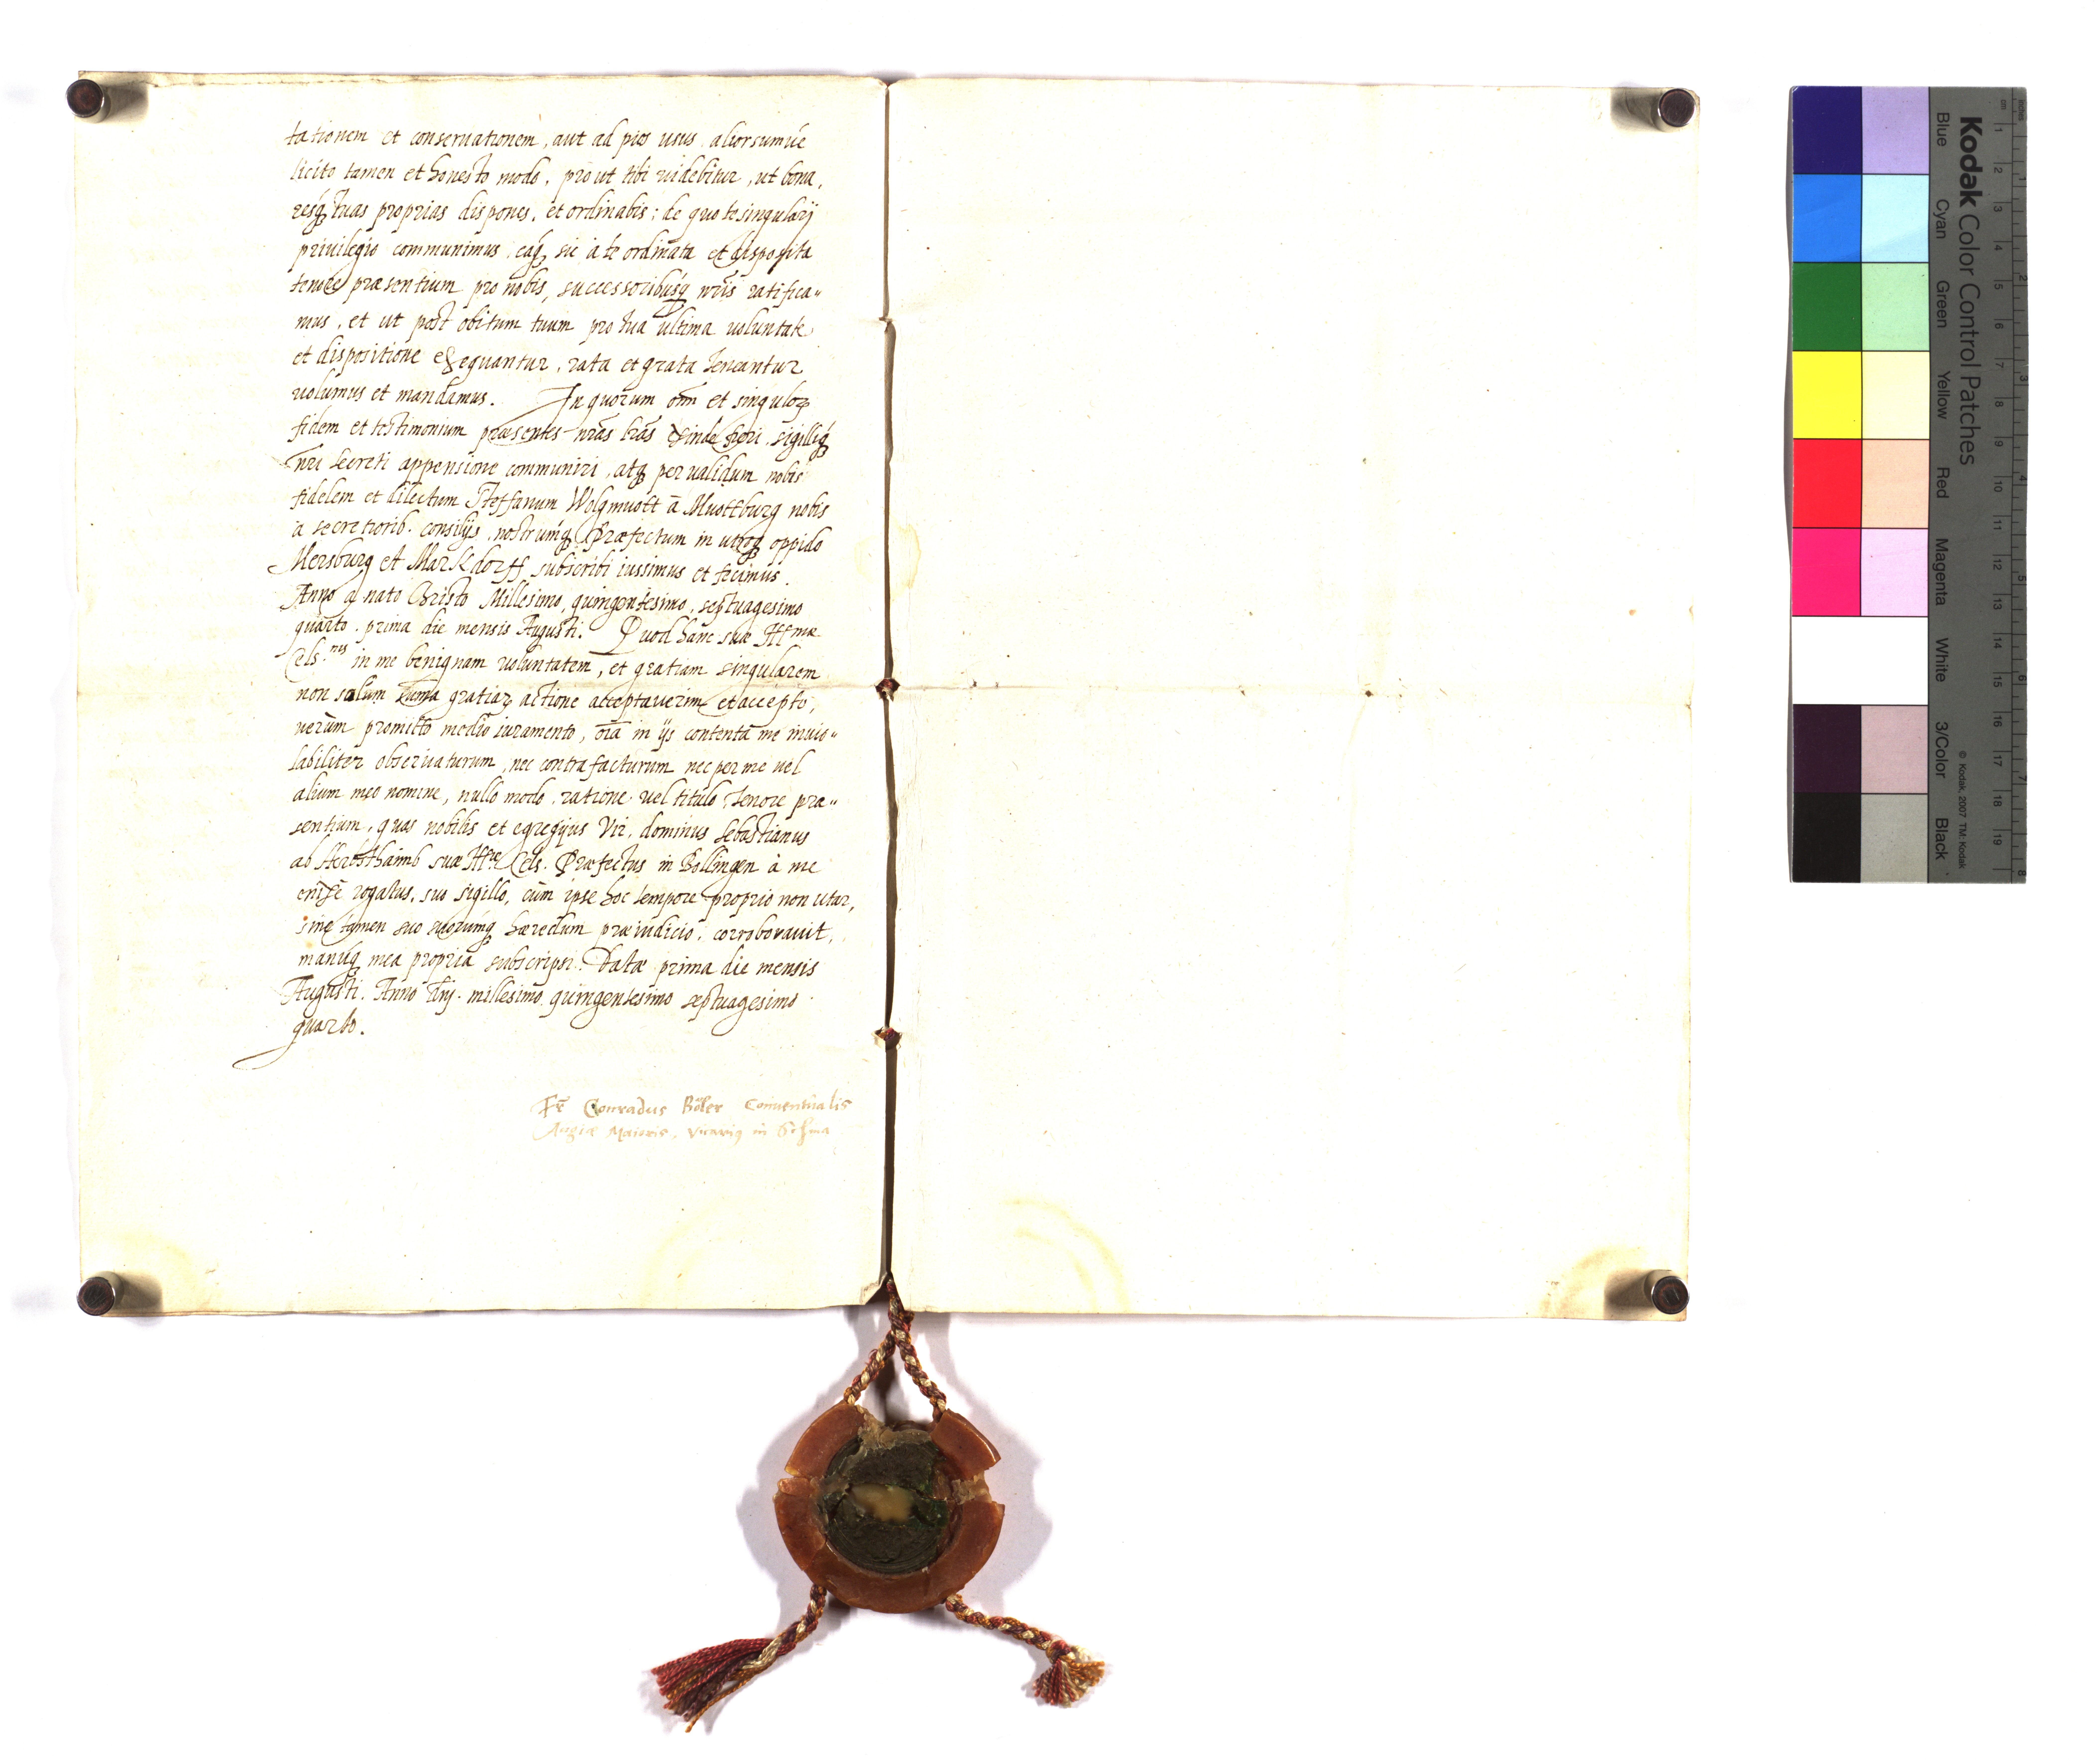 tationem et conseruationem, aut ad pios usus aliorsumúe
licito tamen et honesto modo, prout tibi uidebitur, ut bona,
resq; tuas proprias dispones, et ordinabis: de quo te singularj
priuilegio communimus, eaq; sic à te ordinata et disposita
tenore præsentium pro nobis, successoribusq; nr̃is ratifica„
mus, et ut post obitum tuum pro tua ultima uoluntate
et dispositione exequantur, rata et grata teneantur
uolumus et mandamus. In quorum om̃ et singuloꝝ
fidem et testimonium præsentes nr̃as lr̃as exinde fieri, sigilliq;
nr̃i secreti appensione communiri, atq; per ualidum nobis
fidelem et dilectum Steffanum Wolgmuott à Muottburg nobis
à secretiorib. consilijs, nostrumq; Præfectum in utroq; oppido
Mersburg et Markdorff subscribi iussimus et fecimus.
Anno a nato Christo Millesimo, quingentesimo, septuagesimo
quarto, prima die mensis Augusti. Quod hanc suæ Ill<sup>mæ</sup>
Cels.<sup>nis</sup> in me benignam uoluntatem, et gratiam singularem
non solum summa gratiaꝝ actione acceptauerim et accepto,
uerùm promitto medio iuramento, oĩa in ijs contenta me inuio„
labiliter obseruaturum, nec contrafacturum nec per me uel
alium meo nomine, nullo modo, ratione uel titulo, tenore præ„
sentium, quas nobilis et egregius Vir, dominus Sebastianus
ab Herbsthaimb suæ Cels. Præfectus in Bollingen à me
rogatus, suo sigillo, cùm ipse hoc tempore proprio non utar,
sine tamen suo suorumq; hæredum præiudicio, corroborauit,
manuq; mea propria subscripsi. Datæ prima die mensis
Augusti. Anno Dñj. millesimo quingentesimo septuagesimo
quarto.
Fr̃ Conradus Böler Conuentualis
Augiæ Maioris, Vicarius in
Kodak Color Control Patches
Blue Cyan Green Yellow Red Magenta White 3/Color Black
© Kodak, 2007 TM: Kodak
cm 1 2 3 4 5 6 7 8 9 10 11 12 13 14 15 16 17 18 19
inches 1 2 3 4 5 6 7 8